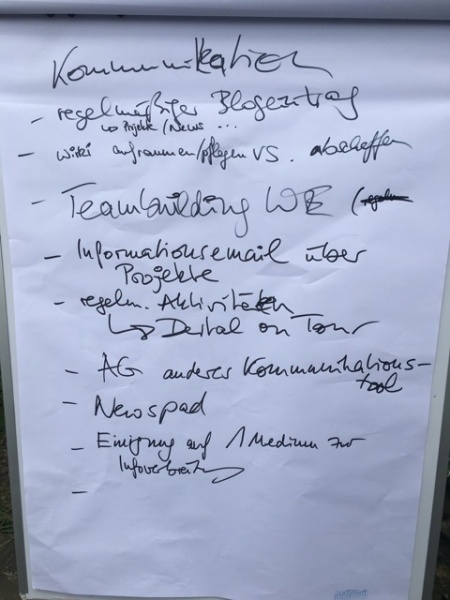 Kommunikation
- regelmäßiger Blogeintrag
↳ Projekte/News ...
- Wiki aufräumen/pflegen VS. abschaffen
- Teambuilding WE (
- Informationsemail über
Projekte
- regelm. Aktivitäten
↳ on Tour
- AG anderes Kommunikations-
tool
- Newspad
- Einigung auf 1 Medium zur
Infoverbreitung
-